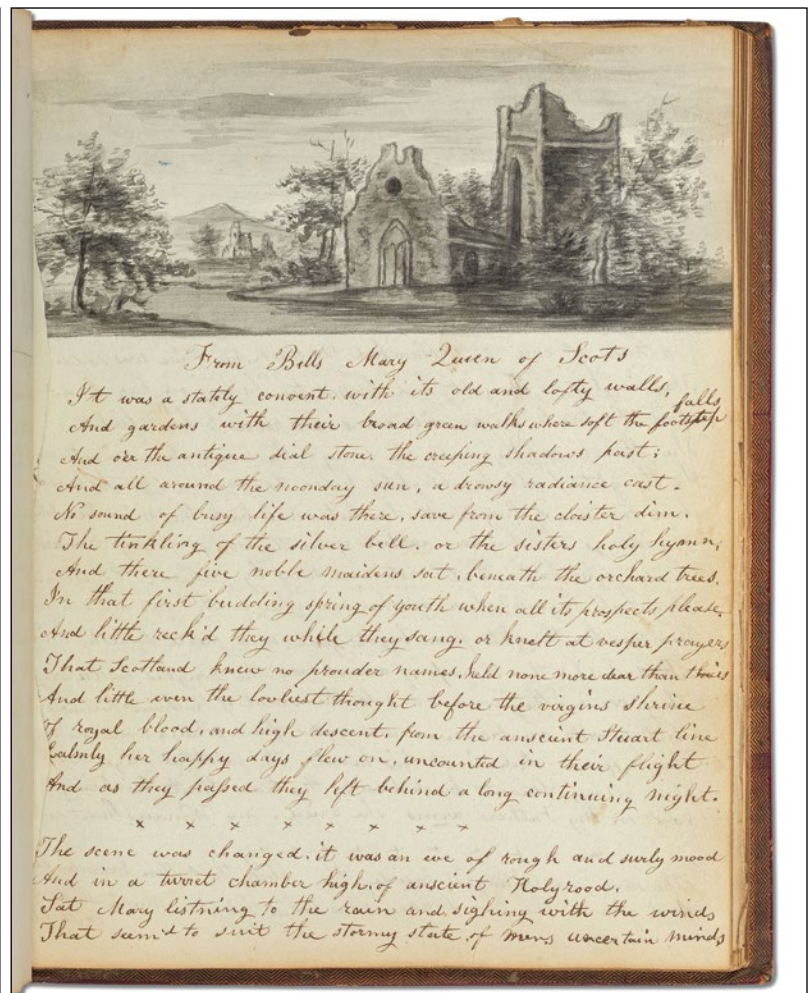 From Bells Mary Queen of Scots
It was a stately convent. with its old and lofty walls,
And gardens with their broad green walks where soft the footstep falls,
And oer the antique dial stone. the creeping shadows past;
And all around the noonday sun, a drowsy radiance cast.
No sound of busy life was there, save from the cloister dim.
The tinkling of the silver bell. or the sisters holy hymn;
And there five noble maidens sat. beneath the orchard trees.
In that first budding spring of youth when all its prospects please.
And little reck'd they while they sang. or knelt at vesper prayers
That Scotland knew no prouder names, held none more dear than theirs
And little even the lovliest thought before the virgins shrine
Of royal blood, and high descent. from the anscient Stuart line
Calmly her happy days flew on. uncounted in their flight
And as they passed they left behind a long continuing night.
x x x x x x x x
The scene was changed. it was an eve of rough and surly mood
And in a turret chamber high. of anscient Holyrood.
Sat Mary listning to the rain and sighing with the winds
That seem'd to suit the stormy state of mens uncertain minds